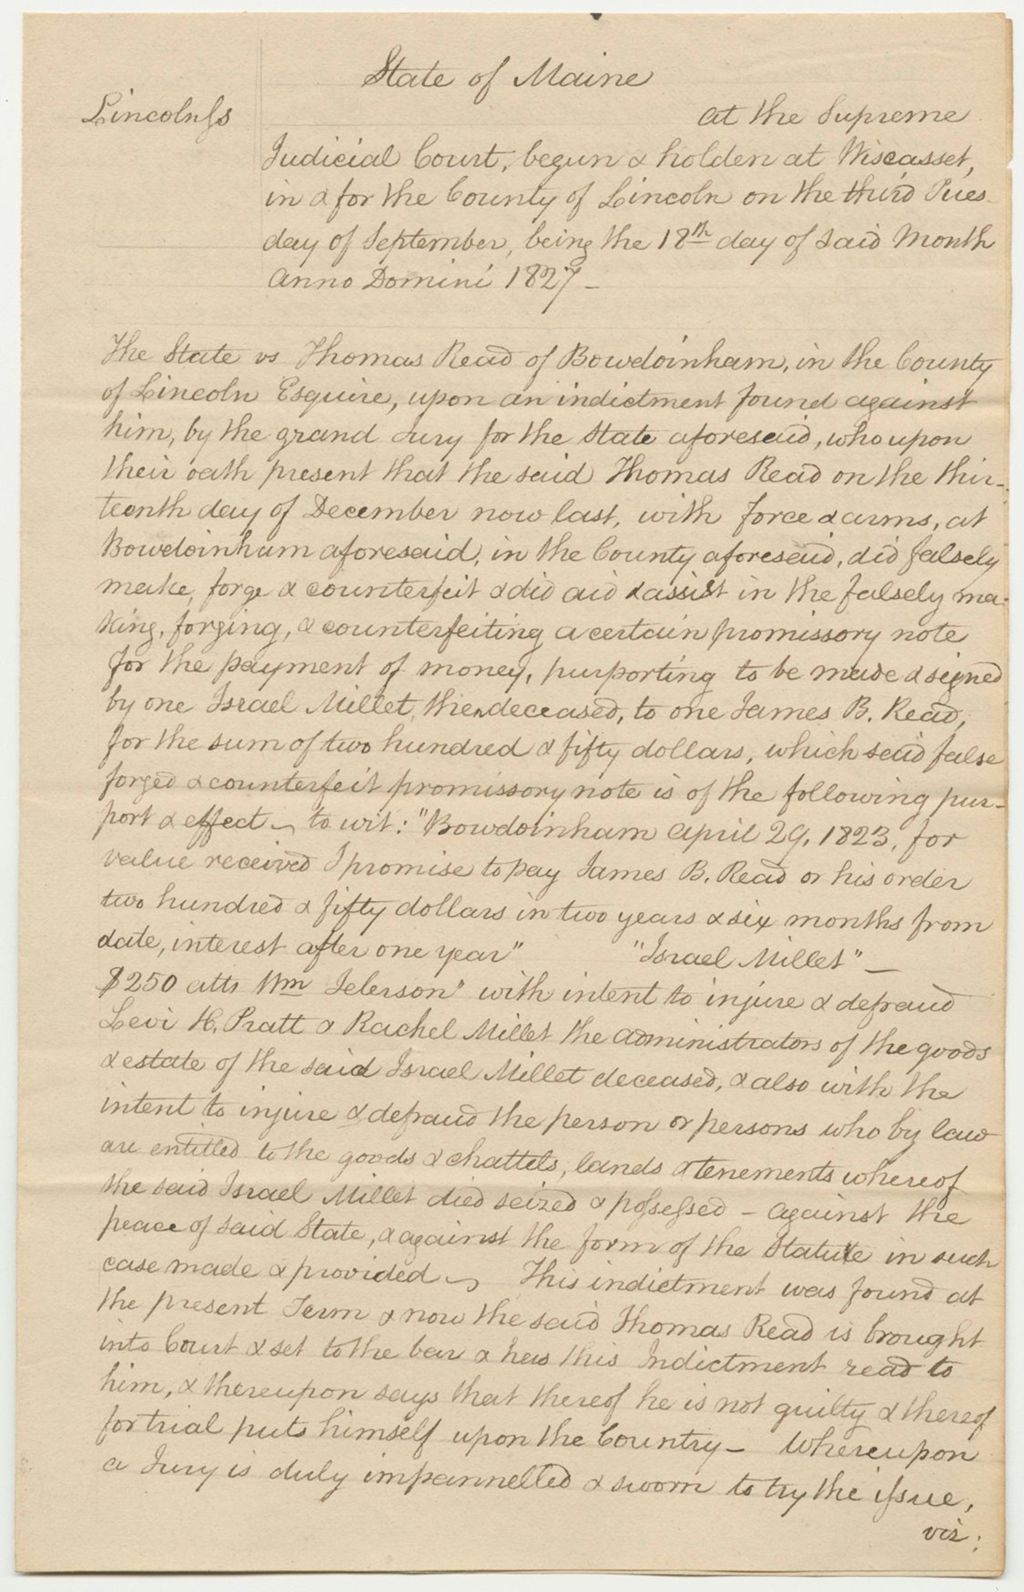 State of Maine
Lincoln ss
at the Supreme
Judicial Court, begun & holden at Wiscasset,
in & for the County of Lincoln on the third Tues-
day of September, being the 18th day of said Month
Anno Domini 1827 -
The State vs Thomas Read of Bowdoinham, in the County
of Lincoln Esquire, upon an indictment found against
him, by the grand Jury for the State aforesaid, who upon
their oath present that the said Thomas Read on the thir-
teenth day of December now last, with force & arms, at
Bowdoinham aforesaid, in the County aforesaid, did falsely
make, forge & counterfeit & did aid & assist in the falsely ma-
king, forging, & counterfeiting a certain promissory note
for the payment of money, purporting to be made & signed
by one Israel Millet, then deceased, to one James B. Read,
for the sum of two hundred & fifty dollars, which said false
forged & counterfeit promissory note is of the following pur-
port & effect - to wit: "Bowdoinham April 29, 1823, for
value received I promise to pay James B. Read or his order
two hundred & fifty dollars in two years & six months from
date, interest after one year" "Israel Millet" -
$250 atts Wm Jelerson" with intent to injure & defraud
Levi H. Pratt & Rachel Millet the administrators of the goods
& estate of the said Israel Millet deceased, & also with the
intent to injure & defraud the person or persons who by law
are entitled to the goods & chattels, lands & tenements whereof
the said Israel Millet died seized & possessed - against the
peace of said State, & against the form of the Statute in such
case made & provided - This indictment was found at
the present Term & now the said Thomas Read is brought
into Court & set to the bar & has this Indictment read to
him, & thereupon says that thereof he is not guilty & thereof
for trial puts himself upon the Country - Whereupon
a Jury is duly impannelled & sworn to try the issue,
viz: